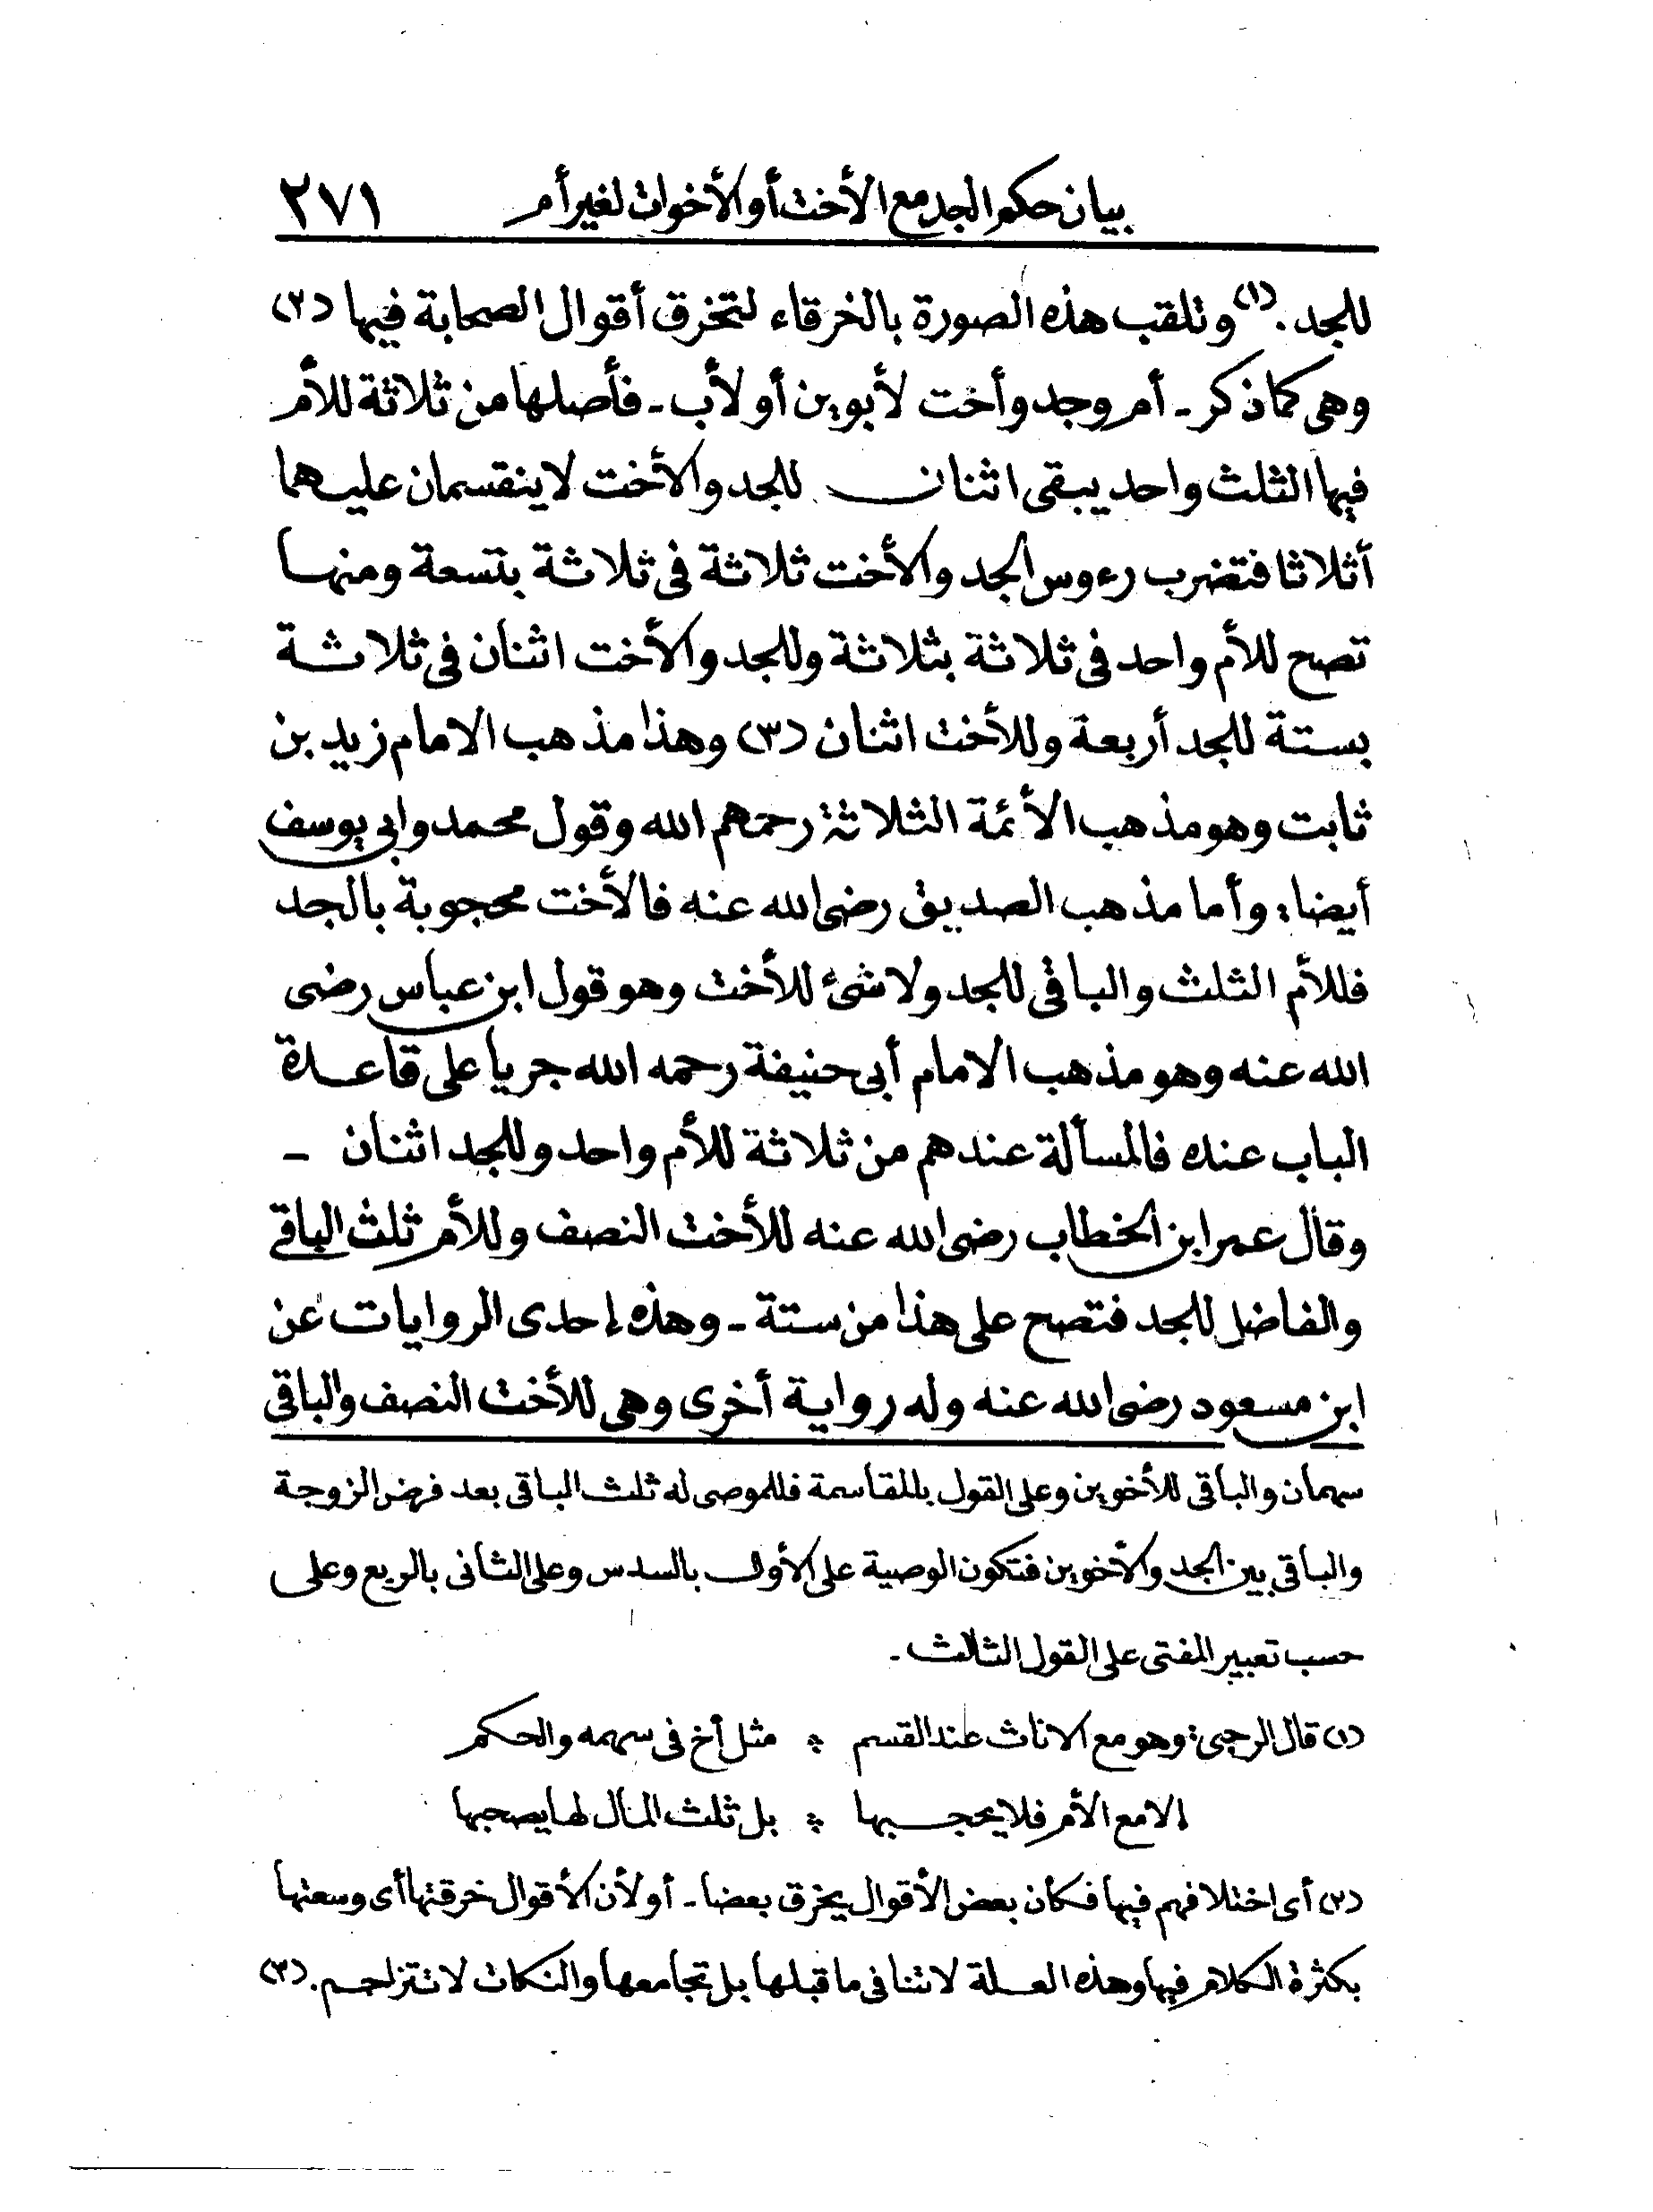 بيان حكم الجد مع الأخت أو الأخوات لغير أم ٢٧١
للجد. (١) وتلقب هذه الصورة بالخرقاء لتخرق أقوال الصحابة فيها (٢)
وهى كما ذكر - أم وجد وأخت لأبوين أو لأب - فأصلها من ثلاثة للأم
فيها الثلث واحد يبقى اثنان للجد والأخت لا ينقسمان عليهما
أثلاثا فتضرب رءوس الجد والأخت ثلاثة فى ثلاثة بتسعة ومنها
تصح للأم واحد فى ثلاثة بثلاثة وللجد والأخت اثنان فى ثلاثة
بستة للجد أربعة وللأخت اثنان (٣) وهذا مذهب الامام زيد بن
ثابت وهو مذهب الأئمة الثلاثة رحمهم الله وقول محمد وابى يوسف
أيضا: وأما مذهب الصديق رضى الله عنه فالأخت محجوبة بالجد
فللأم الثلث والباقى للجد ولا شئ للأخت وهو قول ابن عباس رضى
الله عنه وهو مذهب الامام أبى حنيفة رحمه الله جريا على قاعدة
الباب عنده فالمسألة عندهم من ثلاثة للأم واحد وللجد اثنان -
وقال عمر ابن الخطاب رضى الله عنه للأخت النصف وللأم ثلث الباقى
والفاضل للجد فتصح على هذا من ستة - وهذه إحدى الروايات عن
ابن مسعود رضى الله عنه وله رواية أخرى وهى للأخت النصف والباقى
سهمان والباقى للأخوين وعلى القول بالمقاسمة فللموصى له ثلث الباقى بعد فرض الزوجة
والباقى بين الجد والأخوين فتكون الوصية على الأول بالسدس وعلى الثانى بالربع وعلى
حسب تعبير المفتى على القول الثالث -
(١) قال الرحبى: وهو مع الاناث عند القسم * مثل أخ فى سهمه والحكم
إلا مع الأم فلا يحجبها * بل ثلث المال لها يصحبها
(٢) أى اختلافهم فيها فكان بعض الأقوال يخرق بعضا - أو لأن الأقوال خرقتها أى وسعتها
بكثرة الكلام فيها وهذه العلة لا تنافى ما قبلها بل تجامعها والنكات لا تتزاحم. (٣)